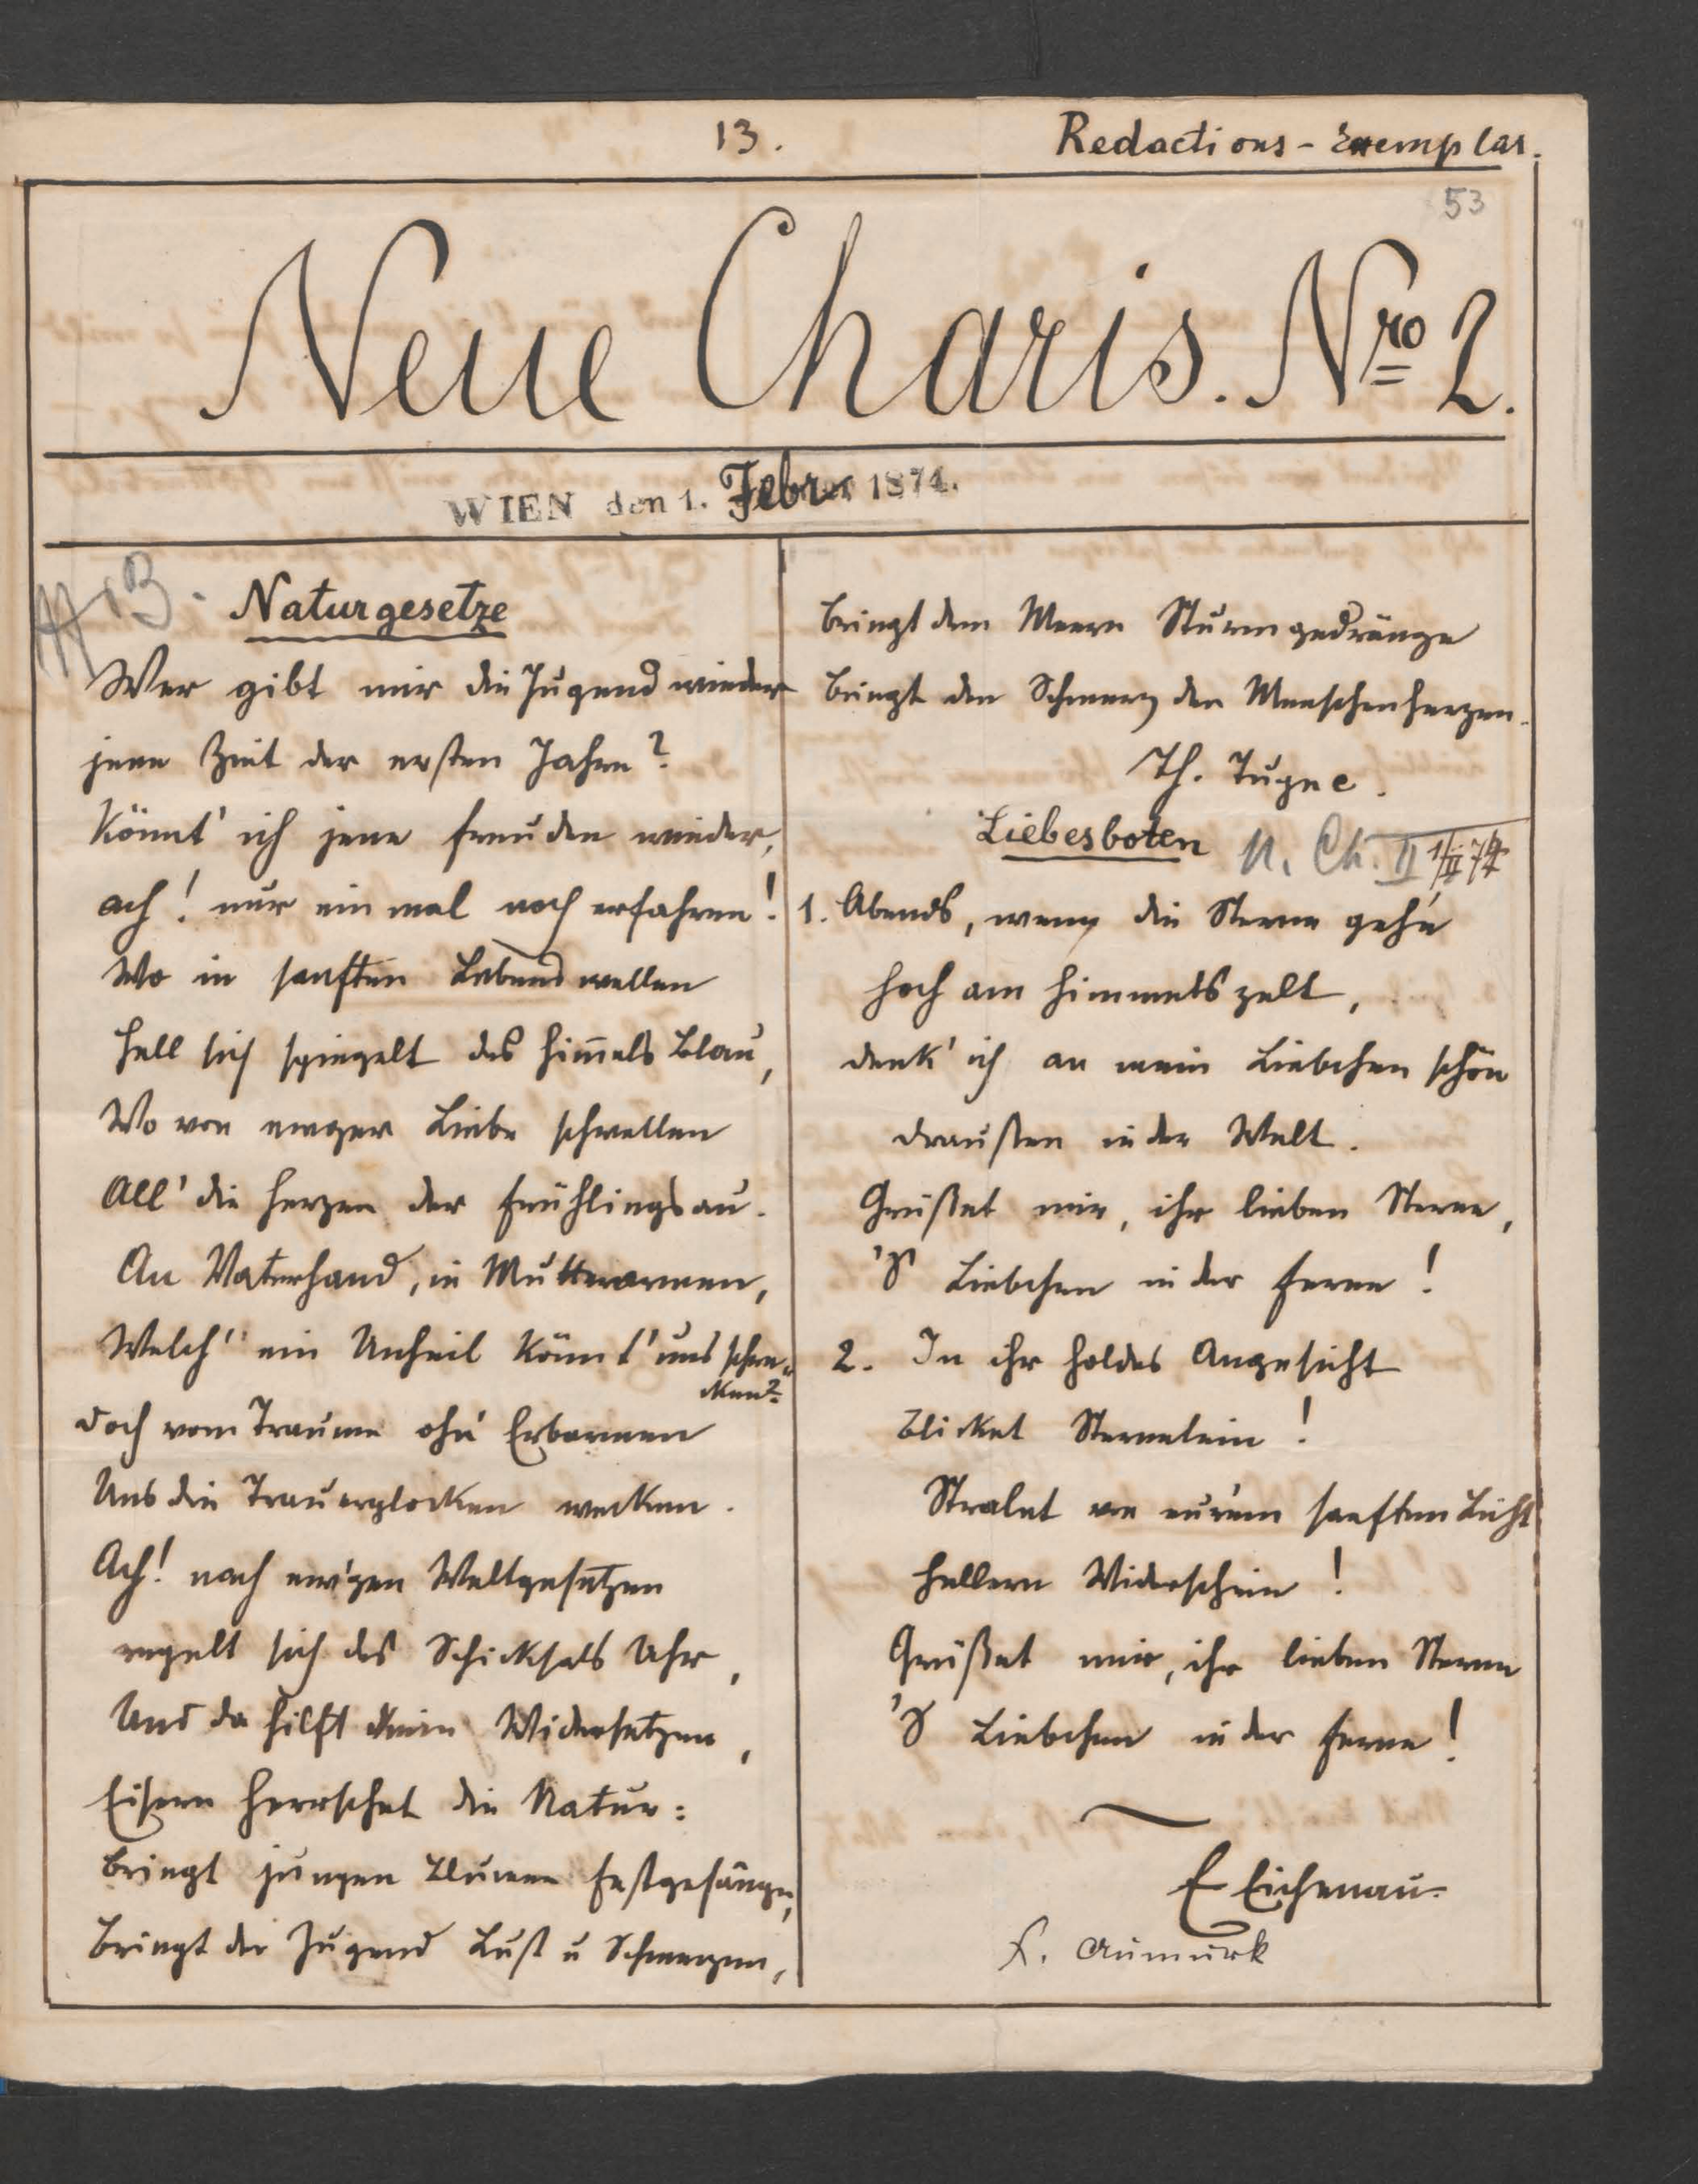 13.
Redactions-Exemplar.
53
Neue Charis. Nro 2.
WIEN den 1. Febr 1874.
Naturgesetze
Wer gibt mir die Jugend wieder
jene Zeit der ersten Jahre?
Könnt' ich jene Freuden wieder,
ach! nur ein mal noch erfahren!
Wo in sanften Lebenswellen
Hell sich spiegelt des Him̅els Blau,
Wo von ewger Liebe schwellen
All' die Herzen der Frühlingsau.
An Vaterhand, in Mutterarmen,
Welch' ein Unheil könnt' uns schre-
cken?
Doch vom Traume ohn' Erbarmen
Uns die Trauerglocken wecken.
Ach! nach ew'gen Weltgesetzen
regelt sich des Schicksals Uhr,
Und da hilft kein Widersetzen,
Eisern herrschet die Natur:
bringt jungen Blumen Festgesänge,
Bringt der Jugend Lust u Schmerzen,
bringt dem Meere Sturmgedränge
bringt den Schmerz den Menschenherzen.
Th. Tugne.
Liebesboten N. Ch. II 1/II 74
1. Abends, wenn die Sterne geh'n
hoch am Himmelszelt,
denk' ich an mein Liebchen schön
draußen in der Welt.
Grüßet mir, ihr lieben Sterne,
's Liebchen in der Ferne!
2. In ihr holdes Angesicht
Blicket Sternelein!
Stralet von eur'em sanften Licht
hellern Widerschein!
Grüßet mir, ihr lieben Sterne
's Liebchen in der Ferne!
E Eichenau